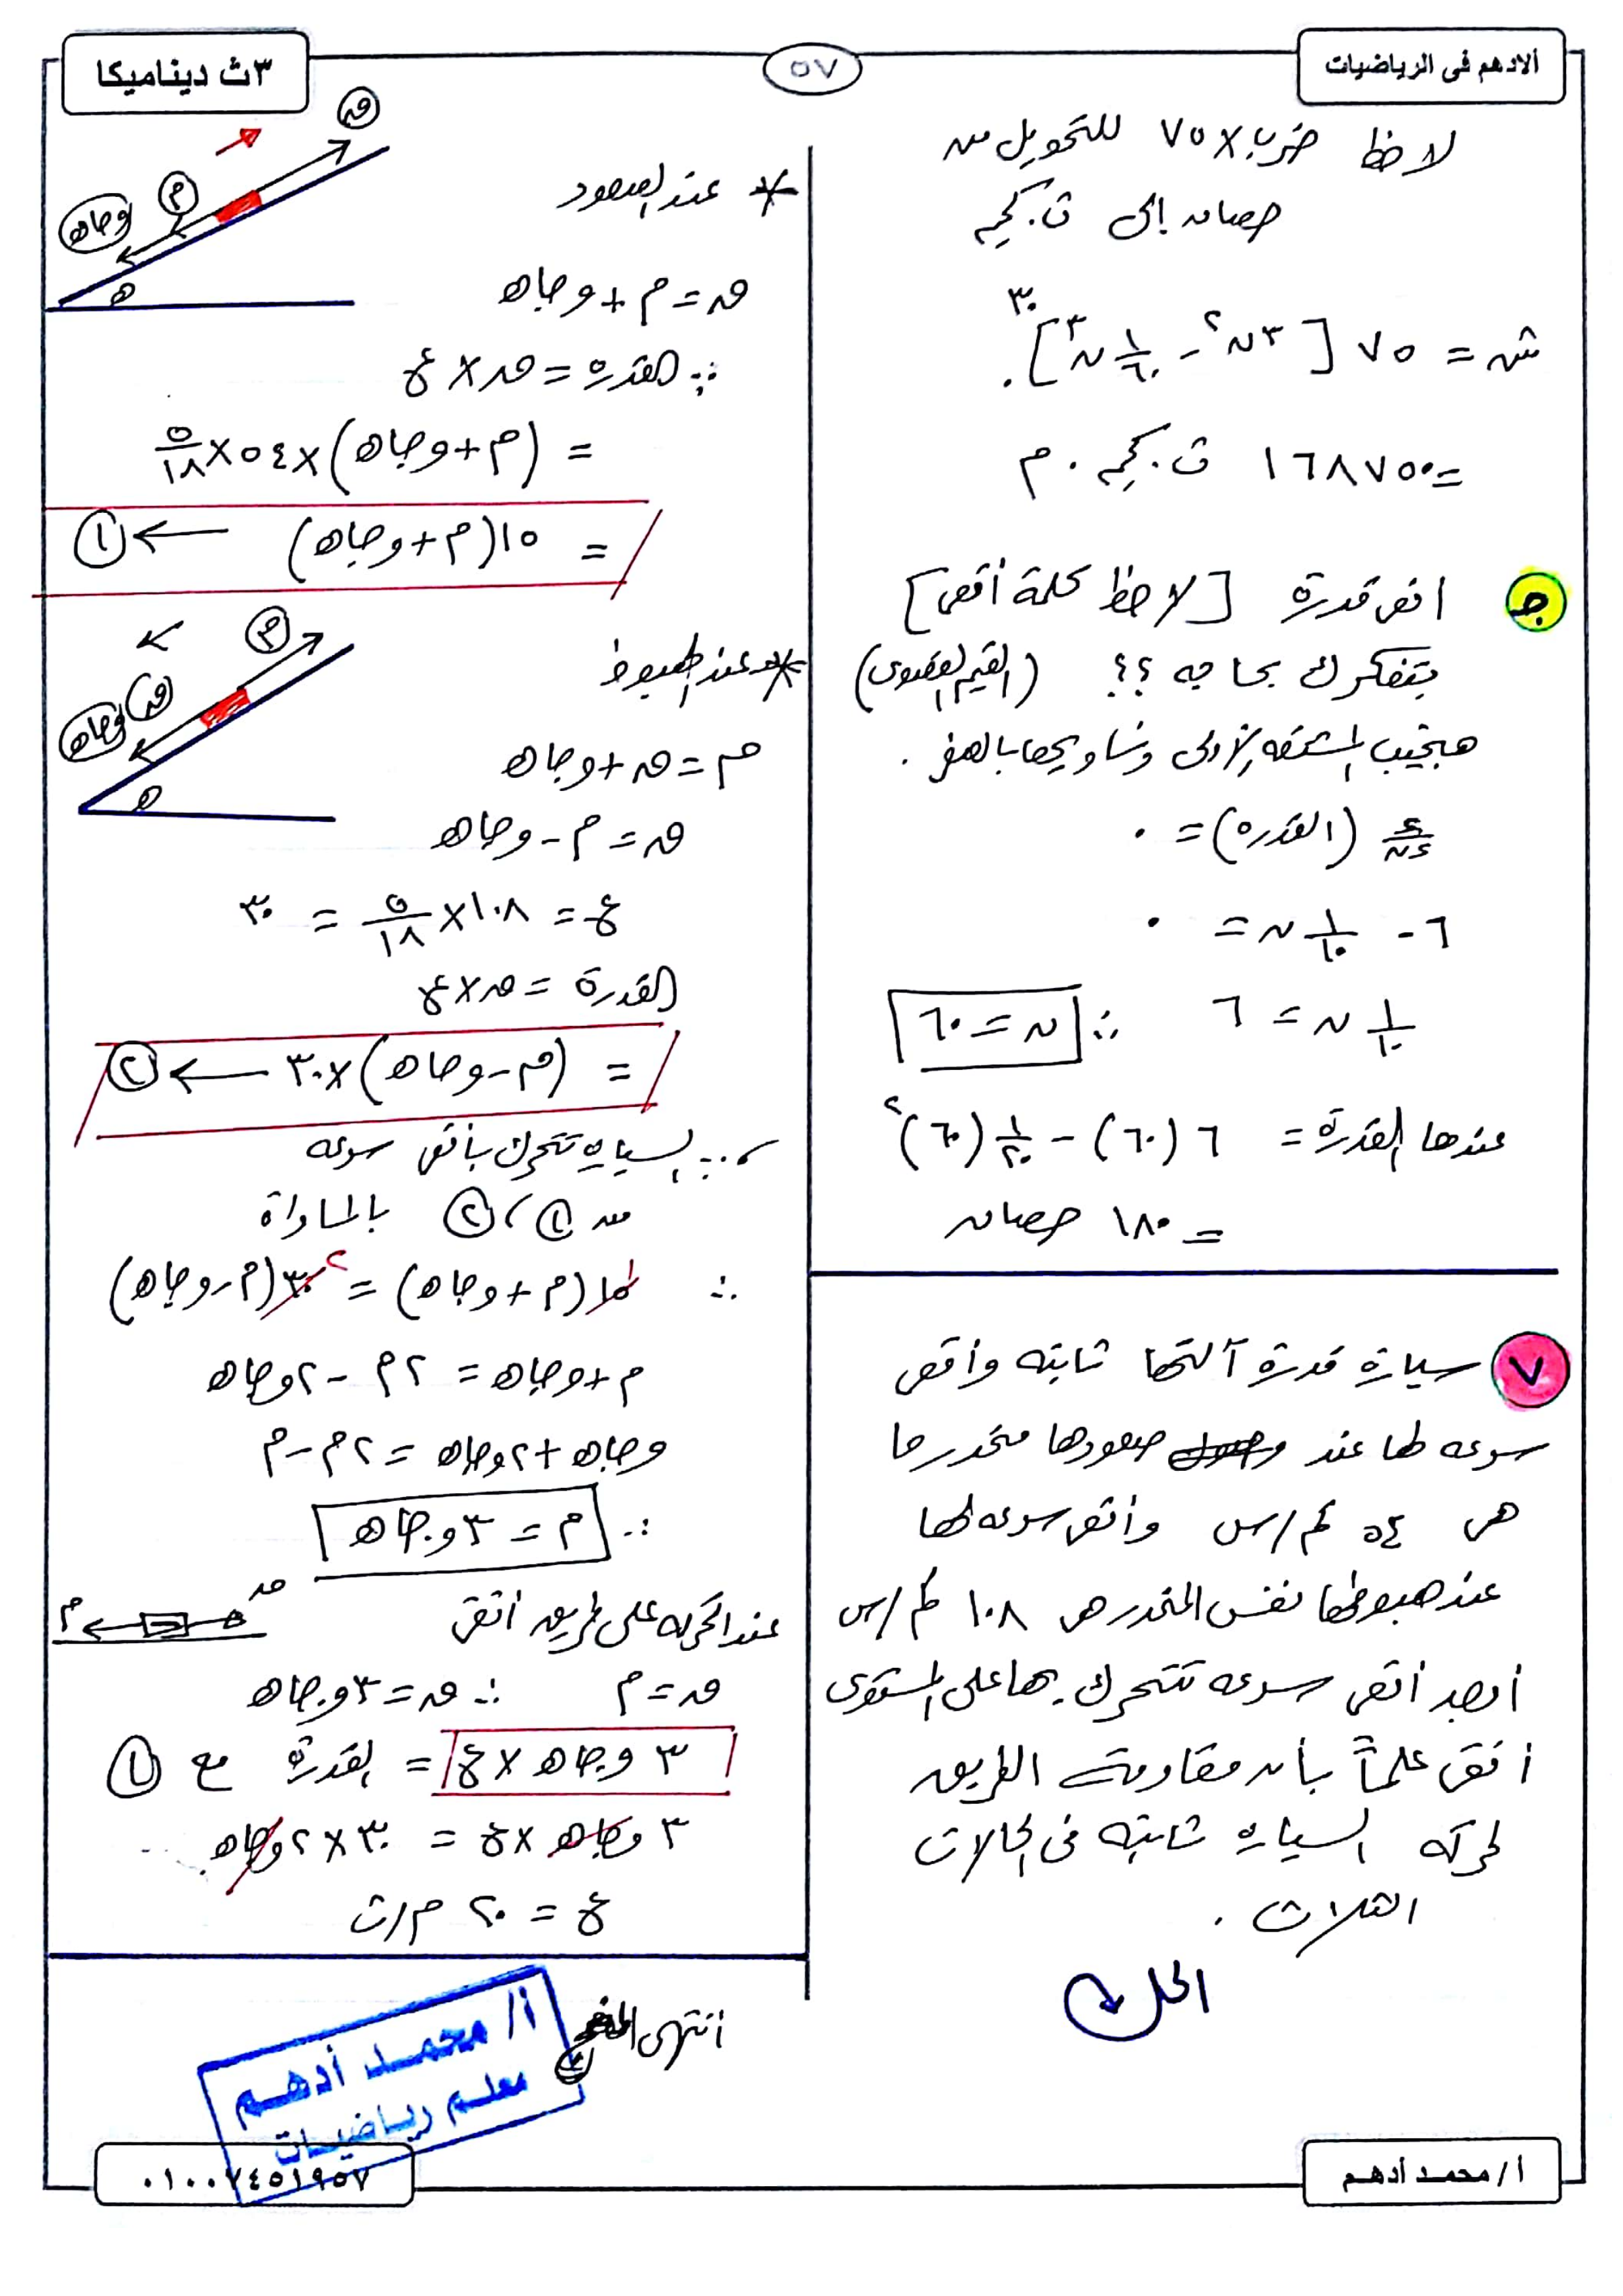 ألادهم فى الرياضيات
٥٧
٣ث ديناميكا
لاحظ ضرب × ٧٥ للتحويل من
حصان إلى ث.كجم
ش = ٧٥ [٣ن٢ - ١/٦٠ ن٣]٣٠ ٠
= ١٦٨٧٥٠ ث.كجم.م
جـ اقصى قدرة [لاحظ كلمة أقصى]
بتفكرك بحاجه ؟؟ (القيم القصوى)
هنجيب المشتقه الأولى ونساويها بالصفر .
ء/ءن (القدره) = ٠
٦ - ١/١٠ ن = ٠
١/١٠ ن = ٦ ∴ ن = ٦٠
عندها القدرة = ٦ (٦٠) - ١/٢٠ (٦٠)٢
= ١٨٠ حصان
٧ سيارة قدرة آلتها ثابته وأقصى
سرعه لها عند صعودها منحدر ما
هى ٥٤ كم/س وأقصى سرعه لها
عند هبوطها نفس المنحدر هى ١٠٨ كم/س
أوجد أقصى سرعه تتحرك بها على المستوى
أفقى علماً بأن مقاومة الطريق
لحركه السياره ثابته فى الحالات
الثلاث .
الحل
* عند الصعود
م
وجاه
ه
ق = م + وجاه
∴ القدرة = ق × ع
= (م + وجاه) × ٥٤ × ٥/١٨
= ١٥ (م + وجاه) ← ١
* عند الهبوط
م
ق
وجاه
ه
م = ق + وجاه
ق = م - وجاه
ع = ١٠٨ × ٥/١٨ = ٣٠
القدرة = ق × ع
= (م - وجاه) × ٣٠ ← ٢
∵ السياره تتحرك بأقصى سرعه
من ١ ، ٢ بالمساواة
∴ ١٥ (م + وجاه) = ٣٠ ٢ (م - وجاه)
م + وجاه = ٢م - ٢وجاه
وجاه + ٢وجاه = ٢م - م
∴ م = ٣ وجاه
عند الحركه على طريق أفقى
ق
م
ق = م ∴ ق = ٣ وجاه
٣ وجاه × ع = القدرة مع ١
٣ وجاه × ع = ٣٠ × ٢ وجاه
ع = ٢٠ م/ث
انتهى
أ/ محمد أدهم
معلم رياضيات
٠١٠٠٧٤٥١٩٥٧
أ / محمد أدهم